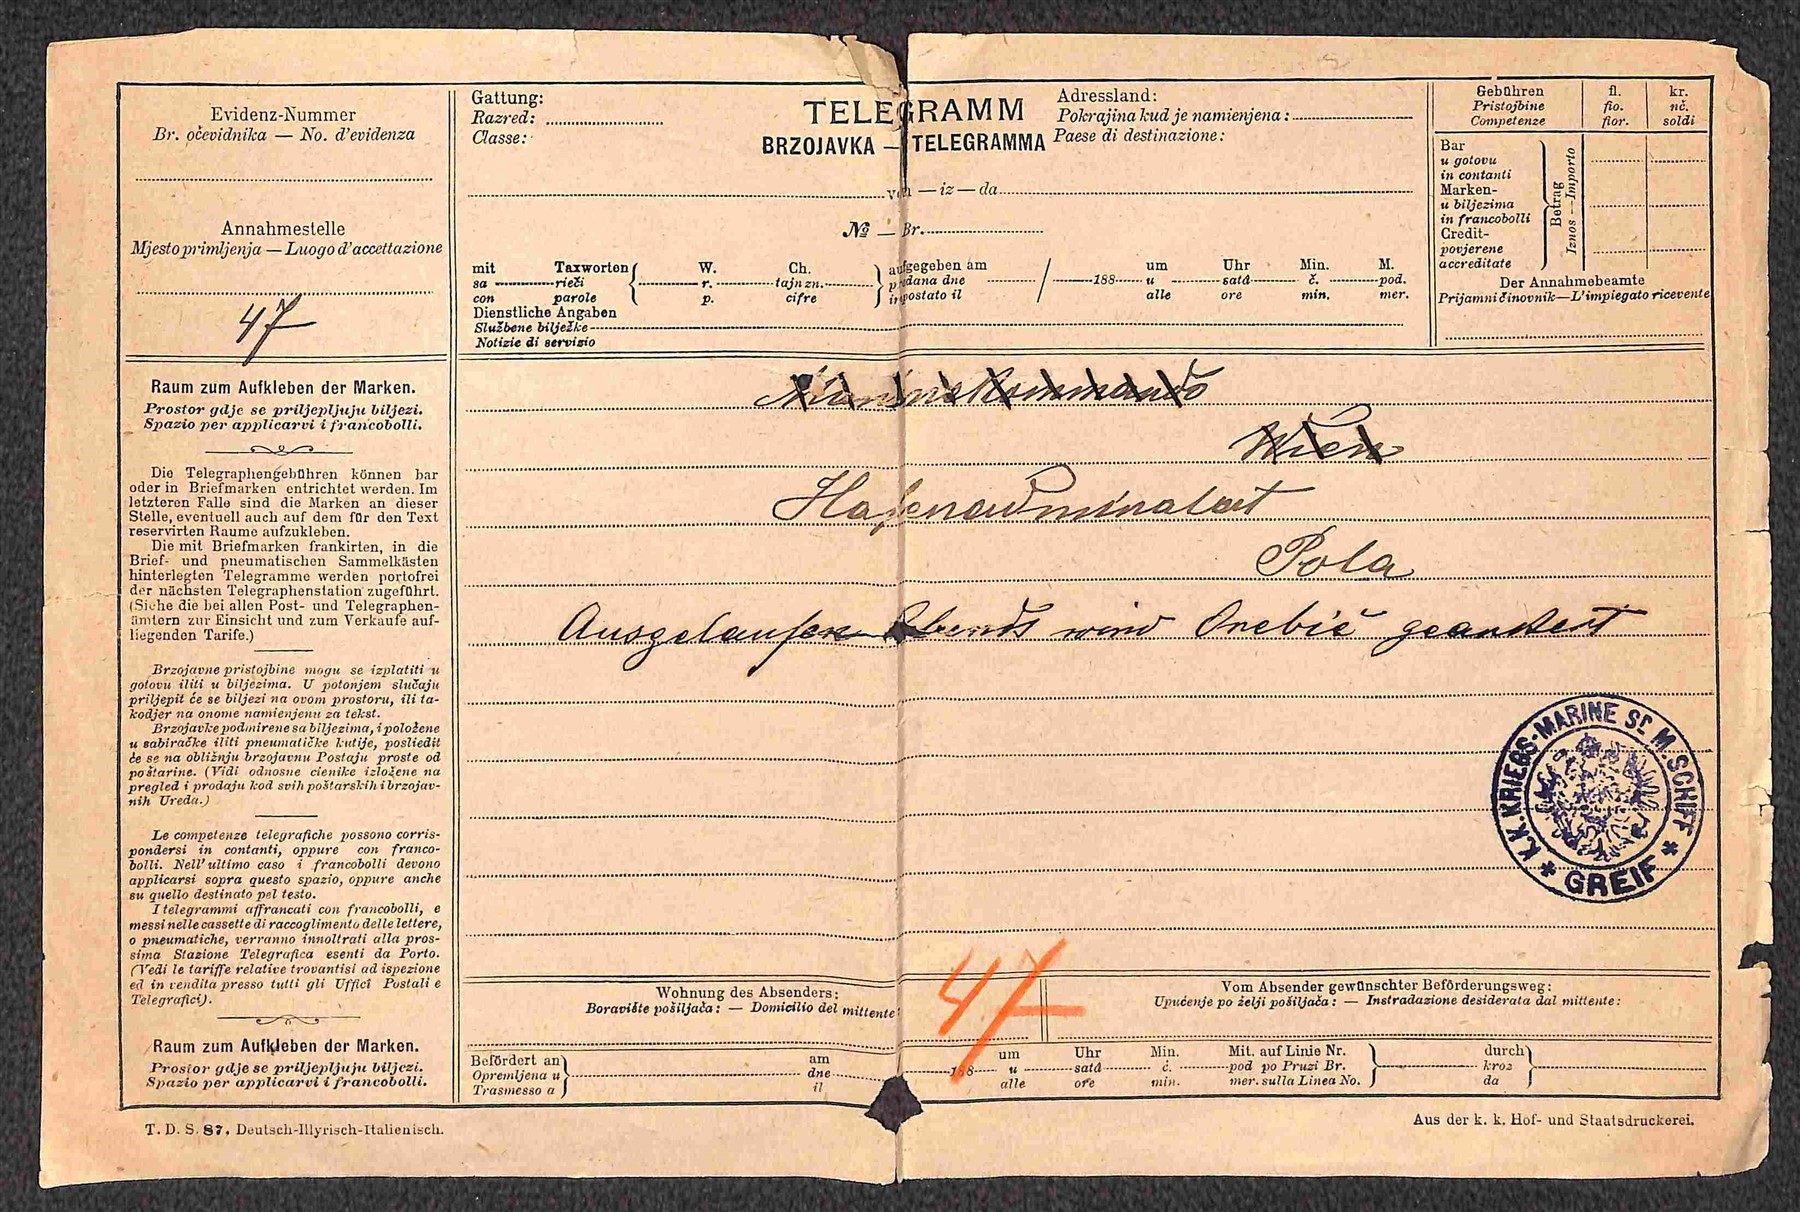 Evidenz-Nummer
Br. očevidnika — No. d'evidenza
Annahmestelle
Mjesto primljenja — Luogo d'accettazione
47
Raum zum Aufkleben der Marken.
Prostor gdje se priljepljuju biljezi.
Spazio per applicarvi i francobolli.
Die Telegraphengebühren können bar
oder in Briefmarken entrichtet werden. Im
letzteren Falle sind die Marken an dieser
Stelle, eventuell auch auf dem für den Text
reservirten Raume aufzukleben.
Die mit Briefmarken frankirten, in die
Brief- und pneumatischen Sammelkästen
hinterlegten Telegramme werden portofrei
der nächsten Telegraphenstation zugeführt.
(Siehe die bei allen Post- und Telegraphen-
ämtern zur Einsicht und zum Verkaufe auf-
liegenden Tarife.)
Brzojavne pristojbine mogu se izplatiti u
gotovu iliti u biljezima. U potonjem slučaju
priljepit će se biljezi na ovom prostoru, ili ta-
kodjer na onome namienjenu za tekst.
Brzojavke podmirene sa biljezima, i položene
u sabiračke iliti pneumatičke kutije, posliedit
će se na obližnju brzojavnu Postaju proste od
poštarine. (Vidi odnosne cienike izložene na
pregled i prodaju kod svih poštarskih i brzojav-
nih Ureda.)
Le competenze telegrafiche possono corris-
pondersi in contanti, oppure con franco-
bolli. Nell' ultimo caso i francobolli devono
applicarsi sopra questo spazio, oppure anche
su quello destinato pel testo.
I telegrammi affrancati con francobolli, e
messi nelle cassette di raccoglimento delle lettere,
o pneumatiche, verranno innoltrati alla pros-
sima Stazione Telegrafica esenti da Porto.
(Vedi le tariffe relative trovantisi ad ispezione
ed in vendita presso tutti gli Uffici Postali e
Telegrafici).
Raum zum Aufkleben der Marken.
Prostor gdje se priljepljuju biljezi.
Spazio per applicarvi i francobolli.
T. D. S. 87. Deutsch-Illyrisch-Italienisch.
Gattung:
Razred:
Classe:
TELEGRAMM
BRZOJAVKA — TELEGRAMMA
Adressland:
Pokrajina kud je namienjena:
Paese di destinazione:
von — iz — da
№ — Br.
mit Taxworten W. Ch. aufgegeben am um Uhr Min. M.
sa rieči r. tajn zn. predana dne / 188 u satâ č. pod.
con parole p. cifre impostato il alle ore min. mer.
Dienstliche Angaben
Službene bilježke
Notizie di servizio
Gebühren fl. kr.
Pristojbine fio. nč.
Competenze fior. soldi
Bar
u gotovu
in contanti
Marken-
u biljezima
in francobolli
Credit-
povjerene
accreditate
Betrag
Iznos — Importo
Der Annahmebeamte
Prijamni činovnik — L'impiegato ricevente
Wien
Hafenadmiralat
Pola
Ausgelaufen Abends wird Orebić geankert
K. K. KRIEGS-MARINE Sr. M. SCHIFF
GREIF
47
Wohnung des Absenders:
Boravište pošiljača: — Domicilio del mittente:
Vom Absender gewünschter Beförderungsweg:
Upućenje po želji pošiljača: — Instradazione desiderata dal mittente:
Befördert an am um Uhr Min. Mit. auf Linie Nr. durch
Opremljena u dne 188 u satâ č. pod po Pruzi Br. kroz
Trasmesso a il alle ore min. mer. sulla Linea No. da
Aus der k. k. Hof- und Staatsdruckerei.